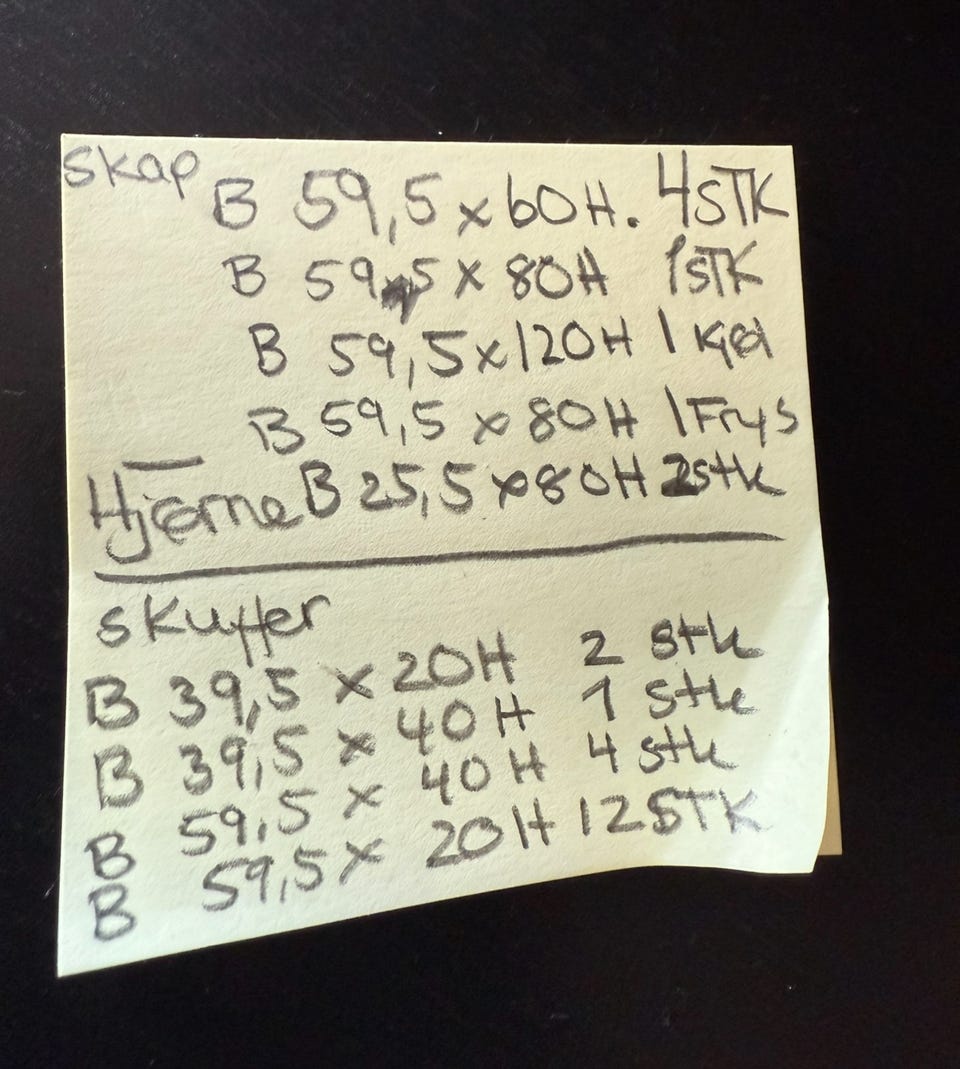 skap B 59,5 x 60H. 4STK
B 59,5 x 80H 1STK
B 59,5 x 120H 1 Kjøl
B 59,5 x 80H 1 Frys
Hjørne B 25,5 x 80H 2stk
skuffer
B 39,5 x 20H 2 stk
B 39,5 x 40H 1 stk
B 59,5 x 40H 4 stk
B 59,5 x 20H 12STK